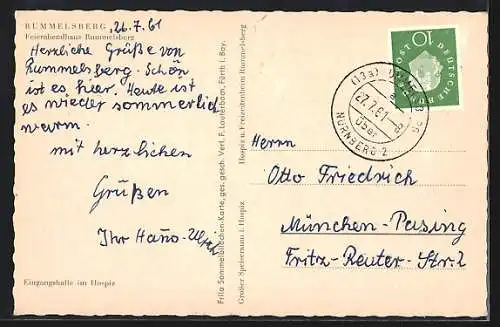 RUMMELSBERG
Feierabendhaus Rummelsberg
26.7.61
Herzliche Grüße von
Rummelsberg. Schön
ist es hier. Heute ist
es wieder sommerlich
warm.
mit herzlichen
Grüßen
Ihr Hans-
Eingangshalle im Hospiz
Frila Sammelkärtchen-Karte, ges. gesch. Verl. F. Lauterbach, Fürth i. Bay.
Großer Speiseraum i. Hospiz
Hospiz u. Freizeitenheim Rummelsberg
10
DEUTSCHE BUNDESPOST
(13a)
27.7.61
NÜRNBERG 2
Herrn
Otto Friedrich
München-Pasing
Fritz-Reuter-Str. 2